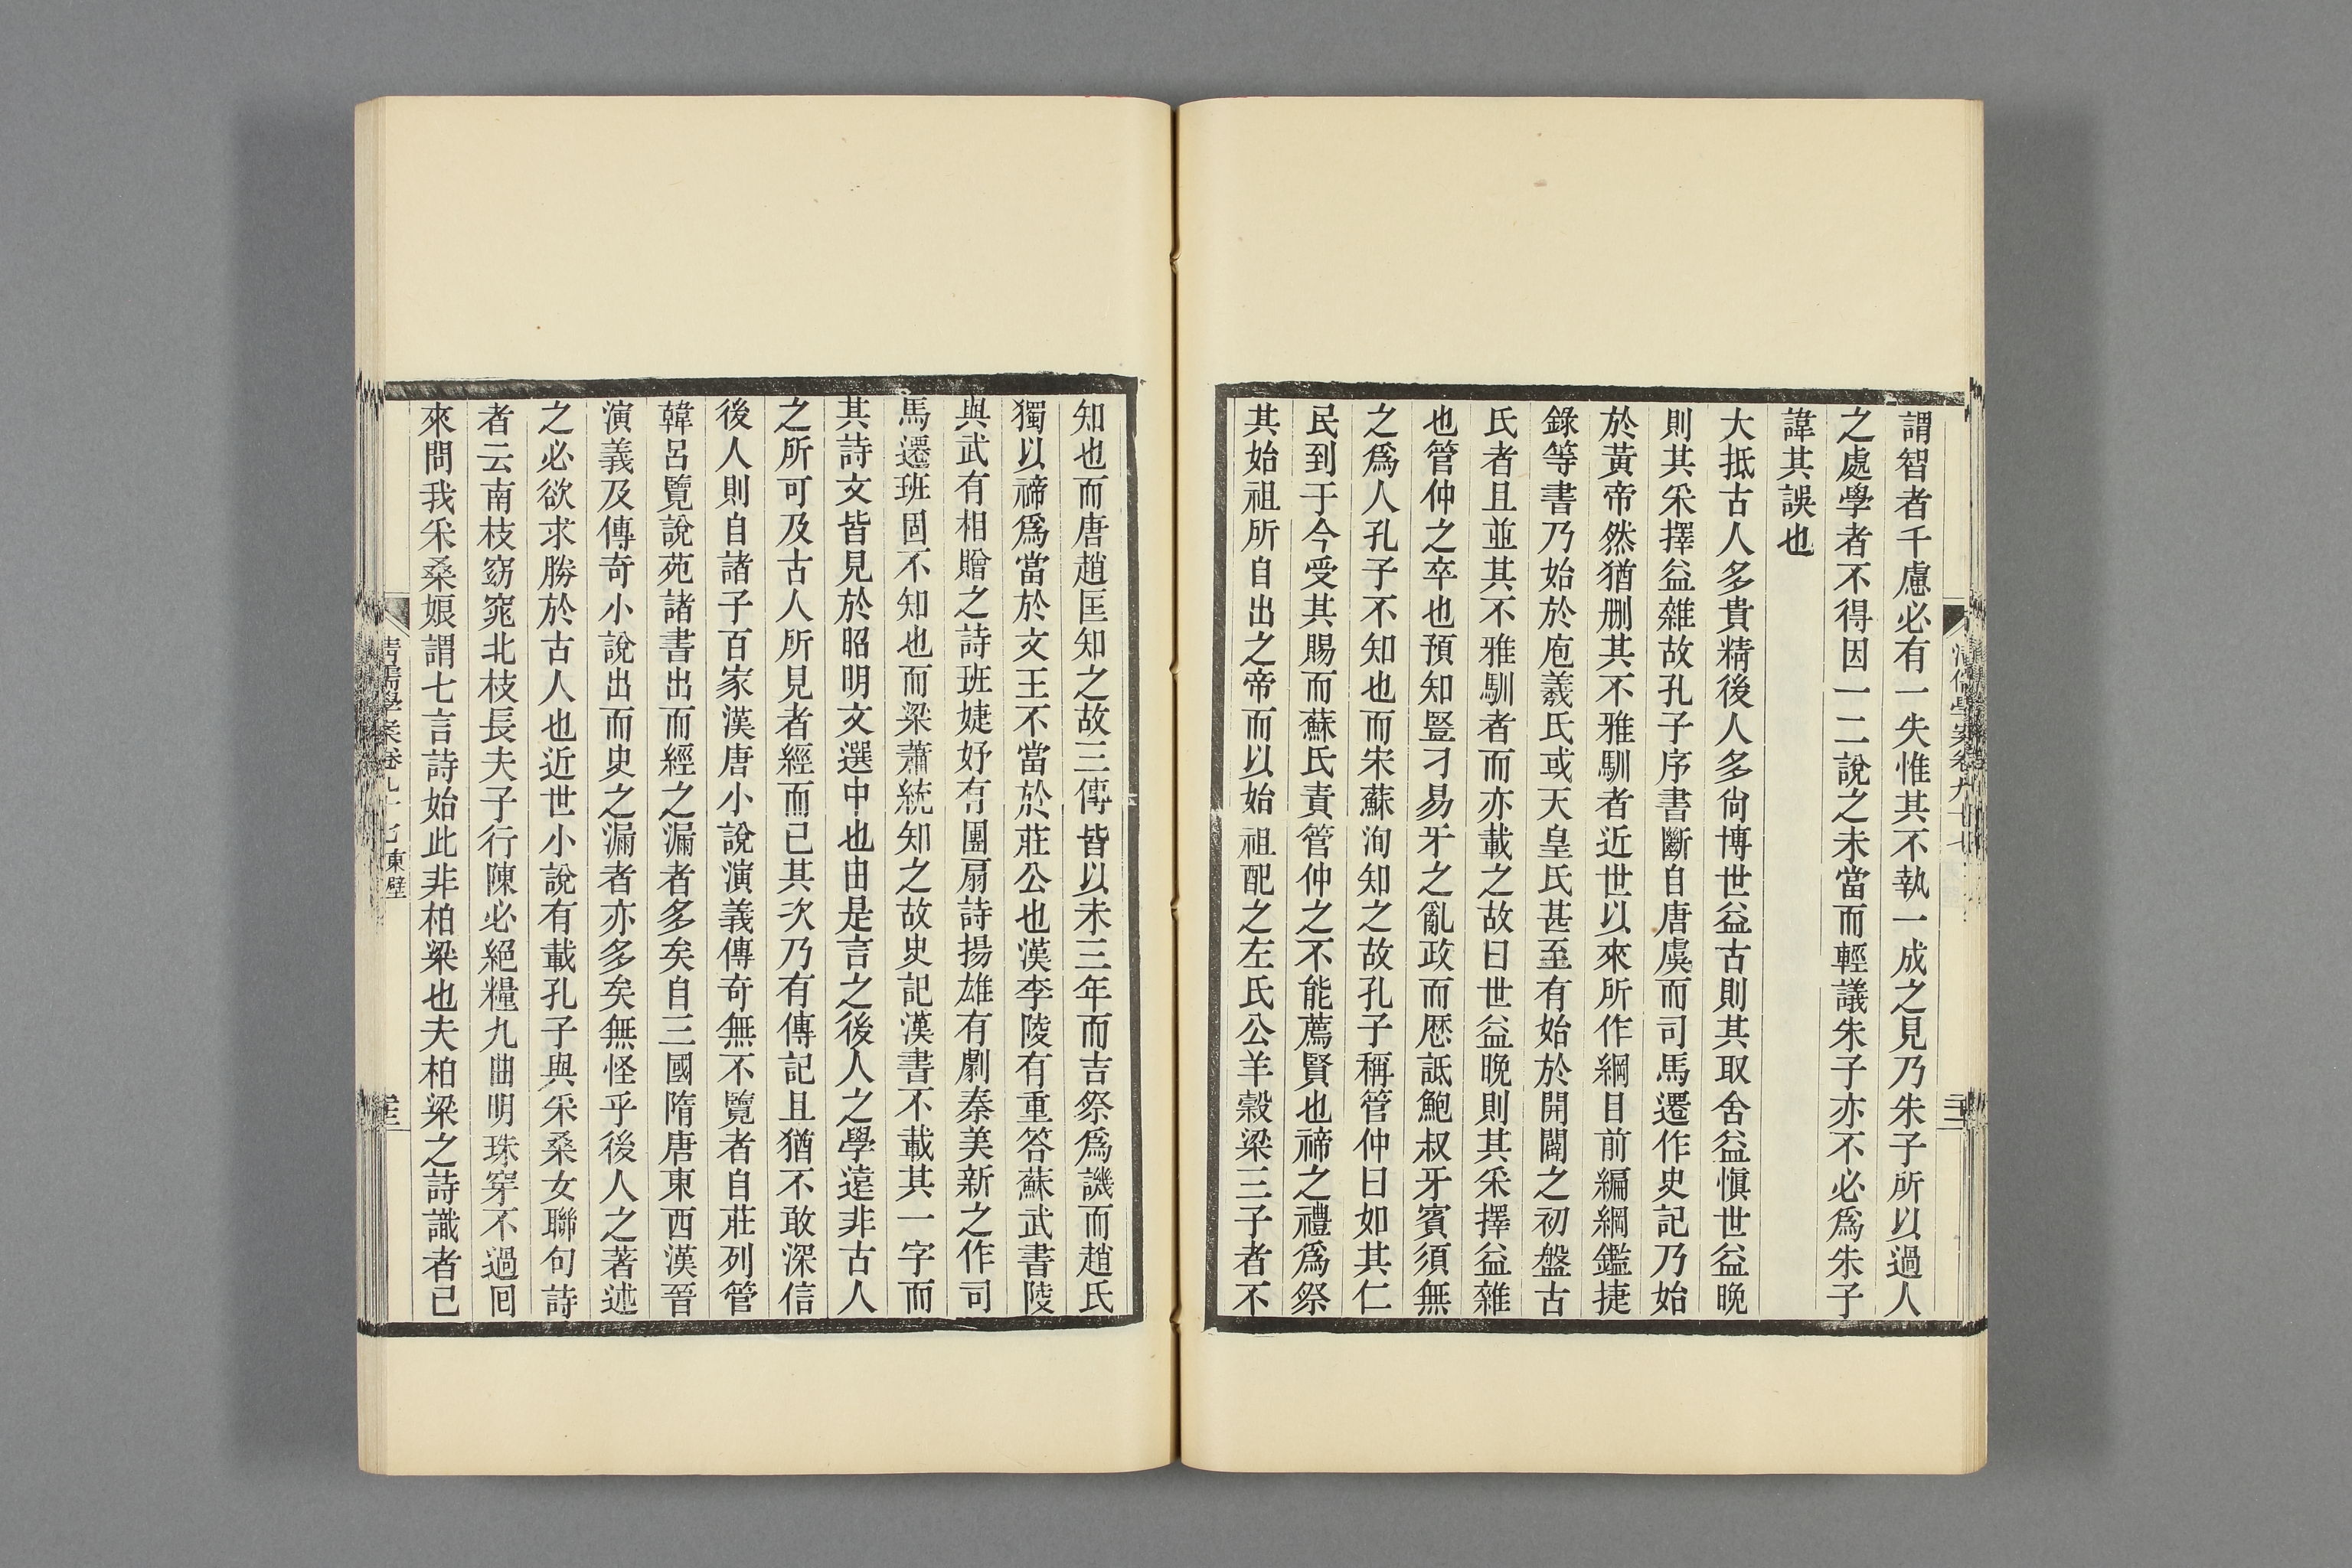 謂智者千慮必有一失惟其不執一成之見乃朱子所以過人
之處學者不得因一二說之未當而輕議朱子亦不必爲朱子
諱其誤也
大抵古人多貴精後人多尙博世益古則其取舍益愼世益晚
則其采擇益雜故孔子序書斷自唐虞而司馬遷作史記乃始
於黃帝然猶刪其不雅馴者近世以來所作綱目前編綱鑑捷
錄等書乃始於庖羲氏或天皇氏甚至有始於開闢之初盤古
氏者且並其不雅馴者而亦載之故曰世益晚則其采擇益雜
也管仲之卒也預知豎刁易牙之亂政而歷詆鮑叔牙賓須無
之爲人孔子不知也而宋蘇洵知之故孔子稱管仲曰如其仁
民到于今受其賜而蘇氏責管仲之不能薦賢也禘之禮爲祭
其始祖所自出之帝而以始祖配之左氏公羊穀梁三子者不
知也而唐趙匡知之故三傳皆以未三年而吉祭爲譏而趙氏
獨以禘爲當於文王不當於莊公也漢李陵有重答蘇武書陵
與武有相贈之詩班婕妤有團扇詩揚雄有劇秦美新之作司
馬遷班固不知也而梁蕭統知之故史記漢書不載其一字而
其詩文皆見於昭明文選中也由是言之後人之學遠非古人
之所可及古人所見者經而已其次乃有傳記且猶不敢深信
後人則自諸子百家漢唐小說演義傳奇無不覽者自莊列管
韓呂覽說苑諸書出而經之漏者多矣自三國隋唐東西漢晉
演義及傳奇小說出而史之漏者亦多矣無怪乎後人之著述
之必欲求勝於古人也近世小說有載孔子與采桑女聯句詩
者云南枝窈窕北枝長夫子行陳必絕糧九曲明珠穿不過回
來問我采桑娘謂七言詩始此非柏梁也夫柏梁之詩識者已
清儒學案卷九十七 東壁